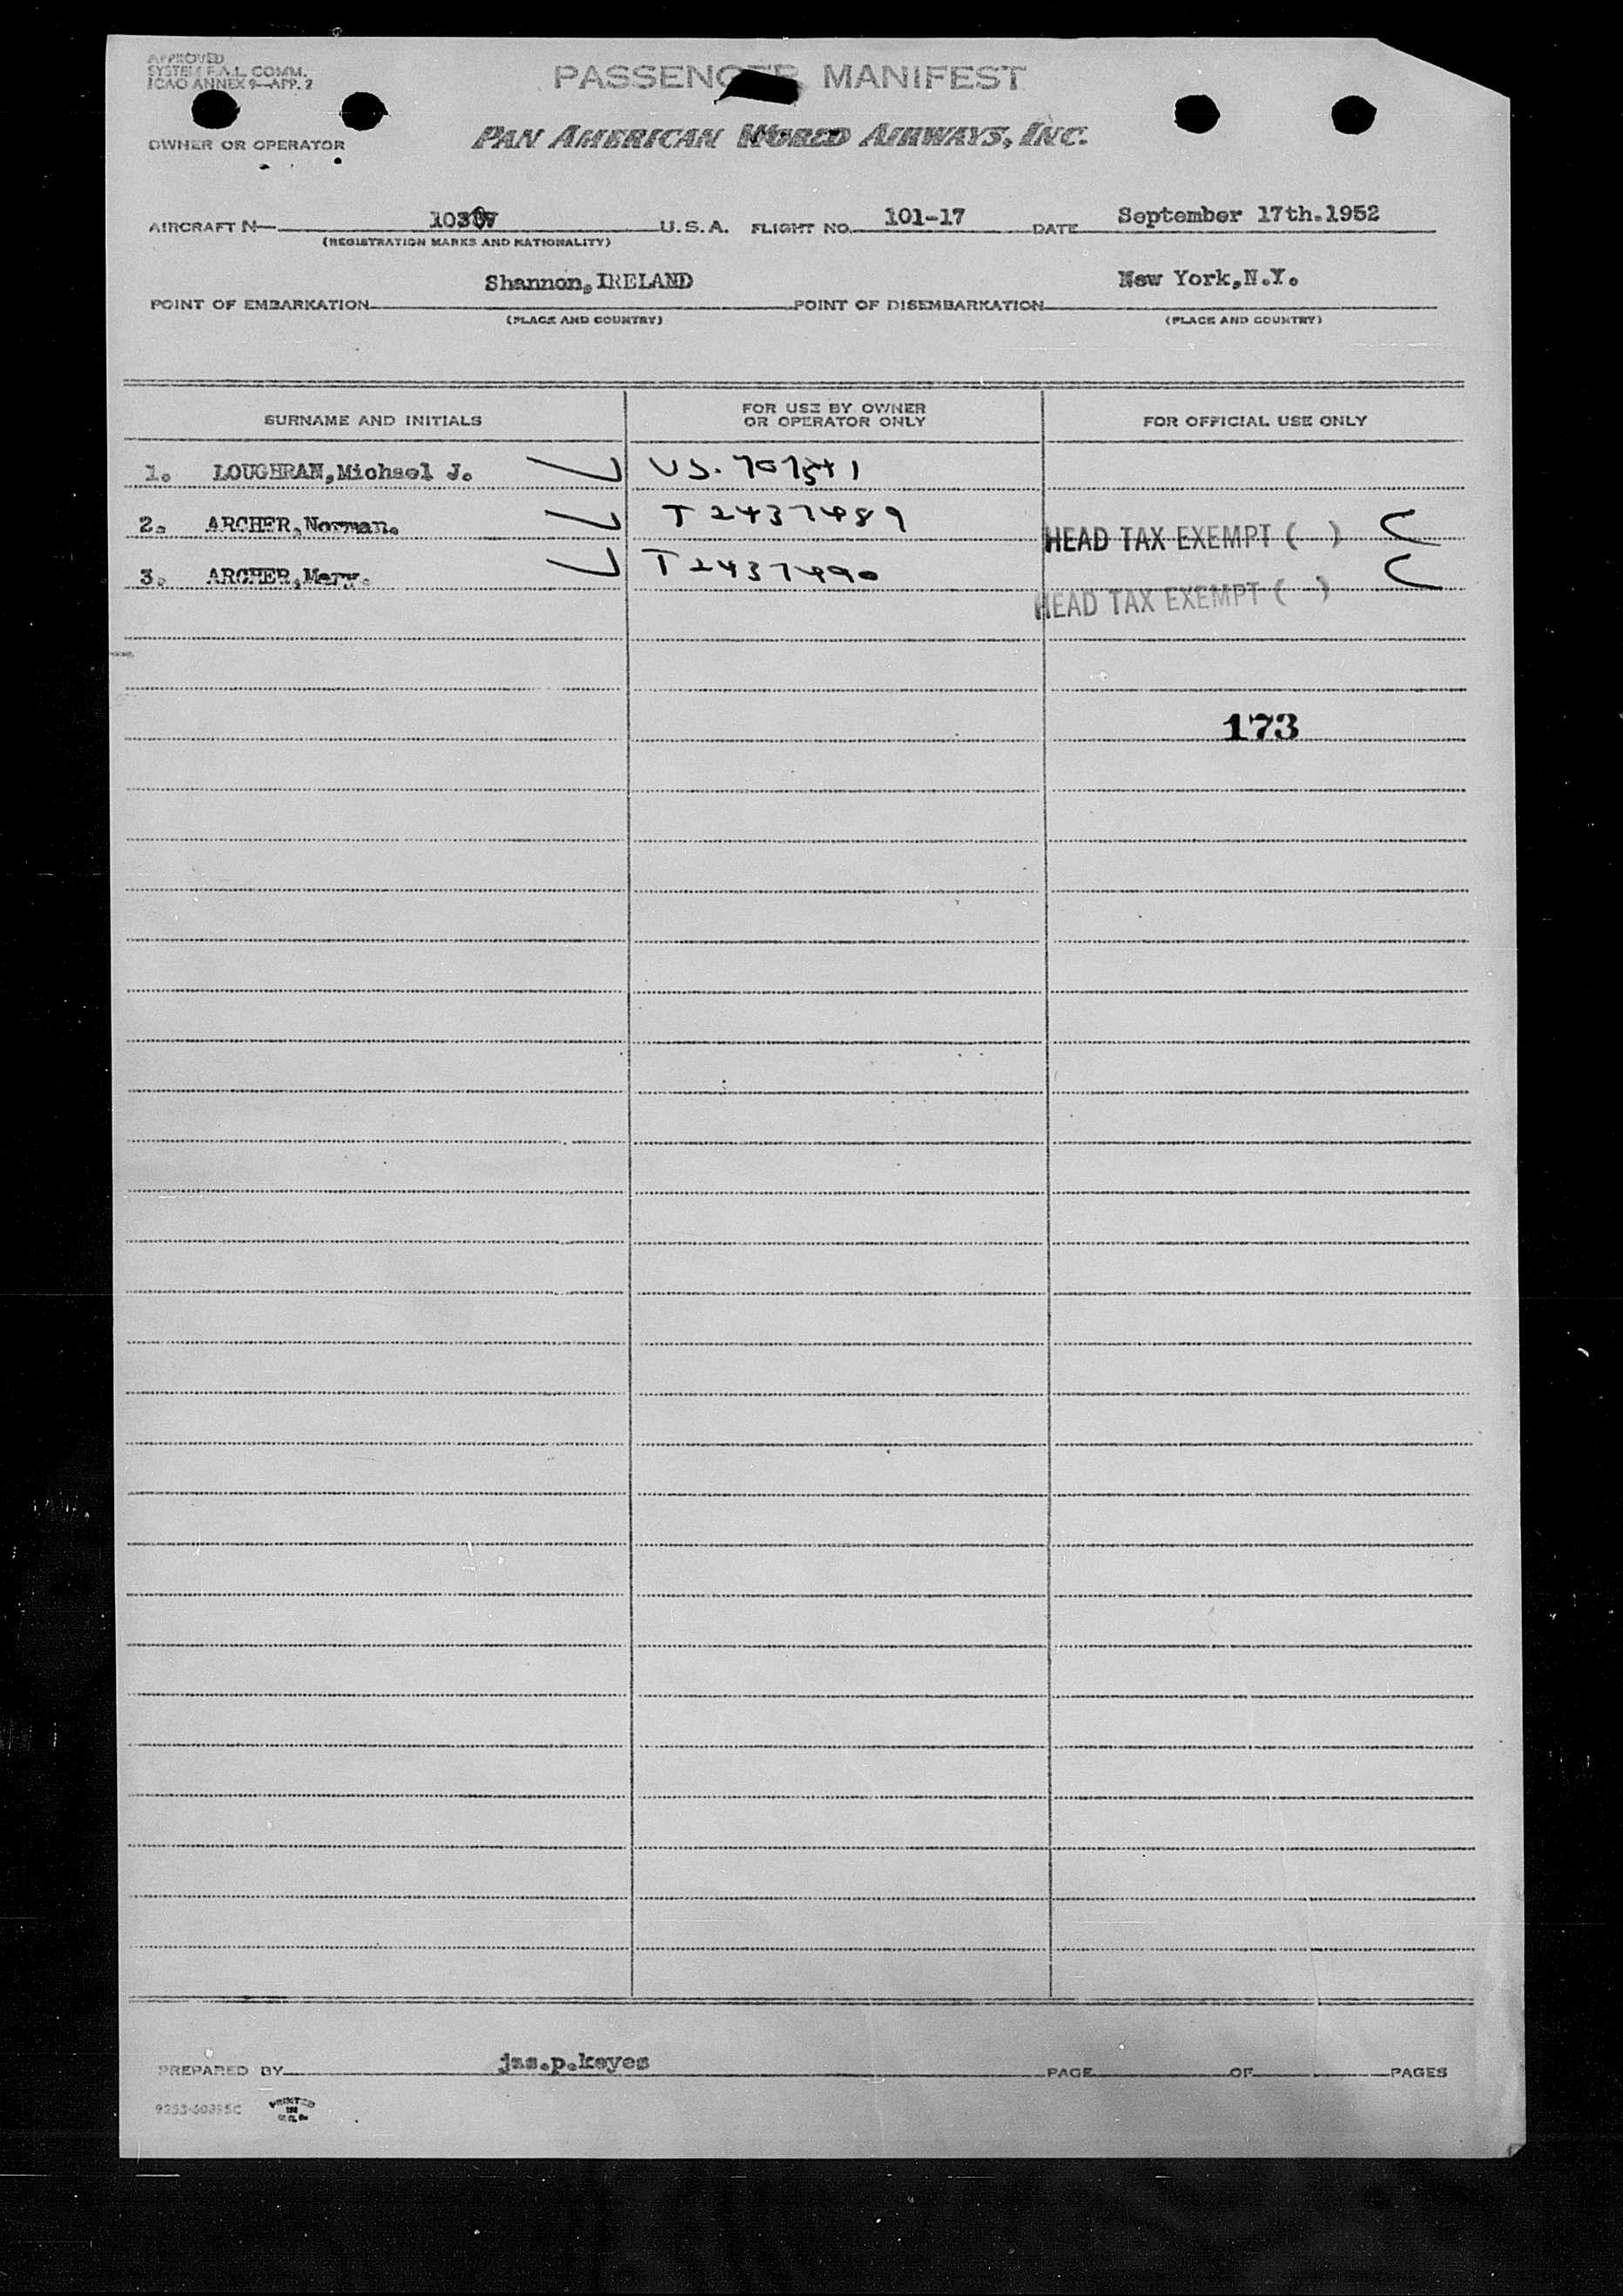 APPROVED
SYSTEM F.A.L. COMM.
ICAO ANNEX 9—APP. 2
PASSENGER MANIFEST
OWNER OR OPERATOR
PAN AMERICAN WORLD AIRWAYS, INC.
AIRCRAFT N— U.S.A. FLIGHT NO. 101-17 DATE September 17th.1952
(REGISTRATION MARKS AND NATIONALITY)
POINT OF EMBARKATION Shannon,IRELAND POINT OF DISEMBARKATION New York,N.Y.
(PLACE AND COUNTRY) (PLACE AND COUNTRY)
SURNAME AND INITIALS FOR USE BY OWNER OR OPERATOR ONLY FOR OFFICIAL USE ONLY
1. LOUGHRAN,Michael J. US.
2. ARCHER,Norman. T 2437489 HEAD TAX EXEMPT ( )
3. ARCHER,Mary. T 2437490 HEAD TAX EXEMPT ( )
173
PREPARED BY jas.p.keyes PAGE OF PAGES
PRINTED
IN
U.S.A.